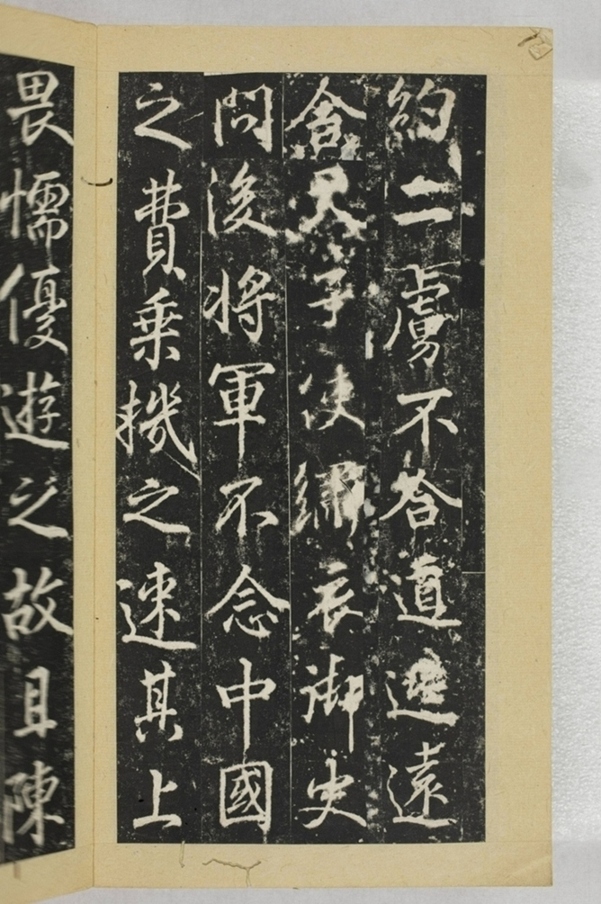 約二虜不道遠
舍天子使繡衣御史
問後將軍不念中國
之費乘機之速其上
畏懦優遊之故且陳